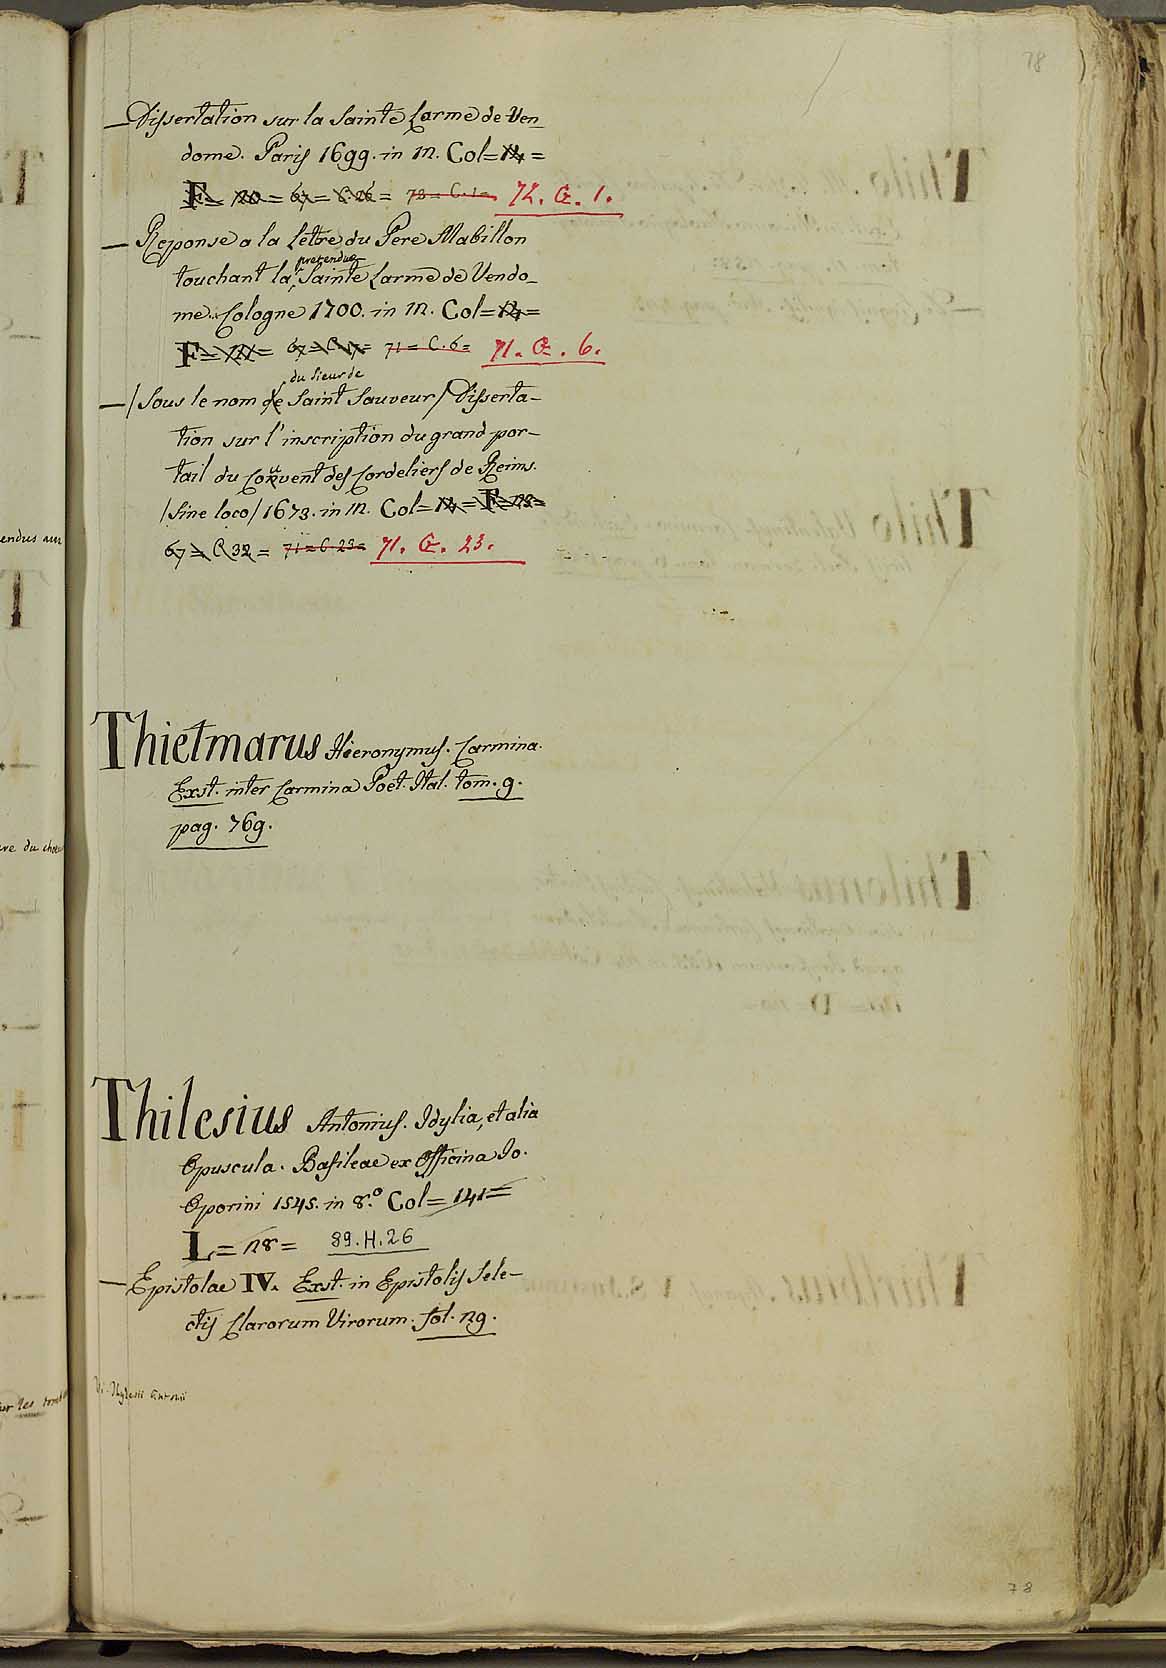 78
— Dissertation sur la Sainte Larme de Ven_
dome. Paris 1699. in 12. Col=14=
F= 120= 67= C.26= 73= C.1= 72. C. 1.
— Reponse a la Letre du Pere Mabillon
touchant la pretendue Sainte Larme de Vendo_
me. Cologne 1700. in 12. Col=14=
F=121= 67= C.17= 71= C.6= 71. C. 6.
— /Sous le nom du Sieur de Saint Sauveur/ Disserta-
tion sur l'inscription du grand por-
tail du Couvent des Cordeliers de Reims.
/Sine loco/ 1673. in 12. Col=14= F=128=
67= C.32= 71= C.23= 71. C. 23.
Thietmarus Hieronymus. Carmina.
Exst. inter Carmina Poet. Ital. tom. 9.
pag. 769.
Thilesius Antonius. Idylia, et alia
Opuscula. Basileae ex Officina Io.
Oporini 1545. in 8.º Col=141=
L=128= 89.H.26
— Epistolae IV. Exst. in Epistolis Sele-
ctis Clarorum Virorum. fol. 129.
V. Thylesii Antonii
78